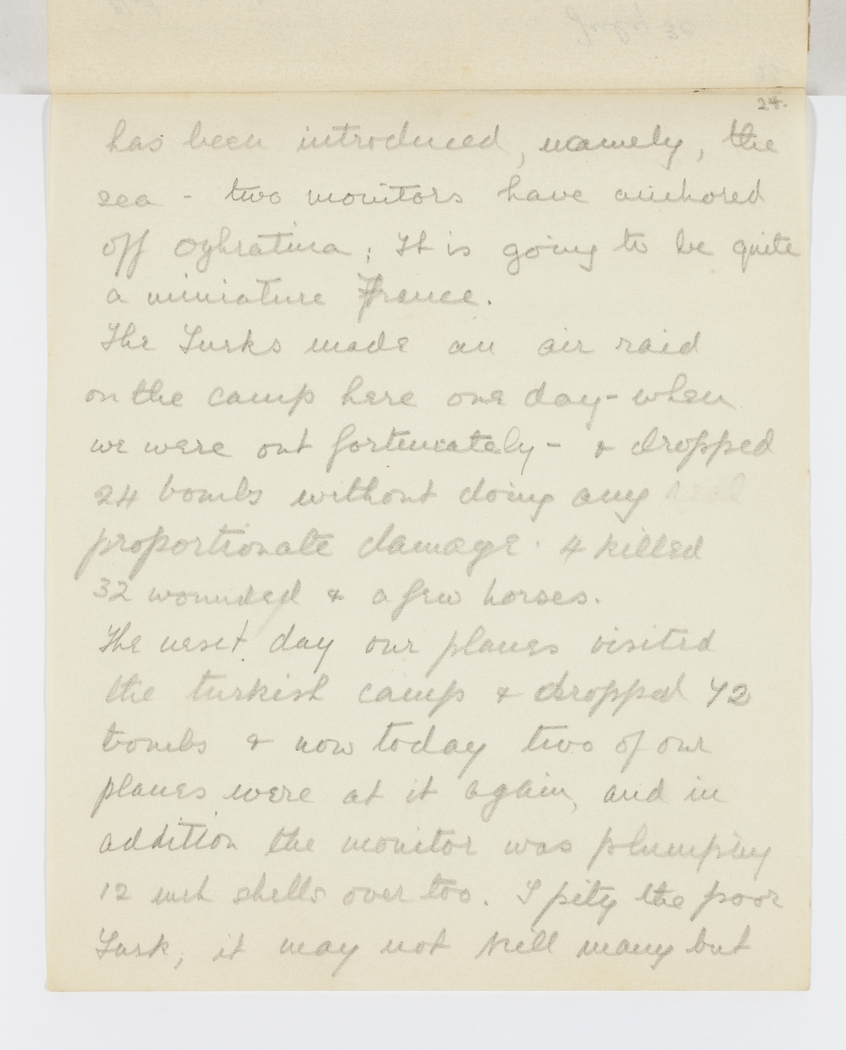 24.
has been introduced, namely, the
sea - two monitors have anchored
off Oghratina; It is going to be quite
a miniature France.
The Turks made an air raid
on the camp here one day - when
we were out fortunately - & dropped
24 bombs without doing any
proportionate damage. 4 killed
32 wounded & a few horses.
The next day our planes visited
the turkish camp & dropped 42
bombs & now today two of our
planes were at it again, and in
addition the monitor was plumping
12 inch shells over too. I pity the poor
Turk, it may not kill many but